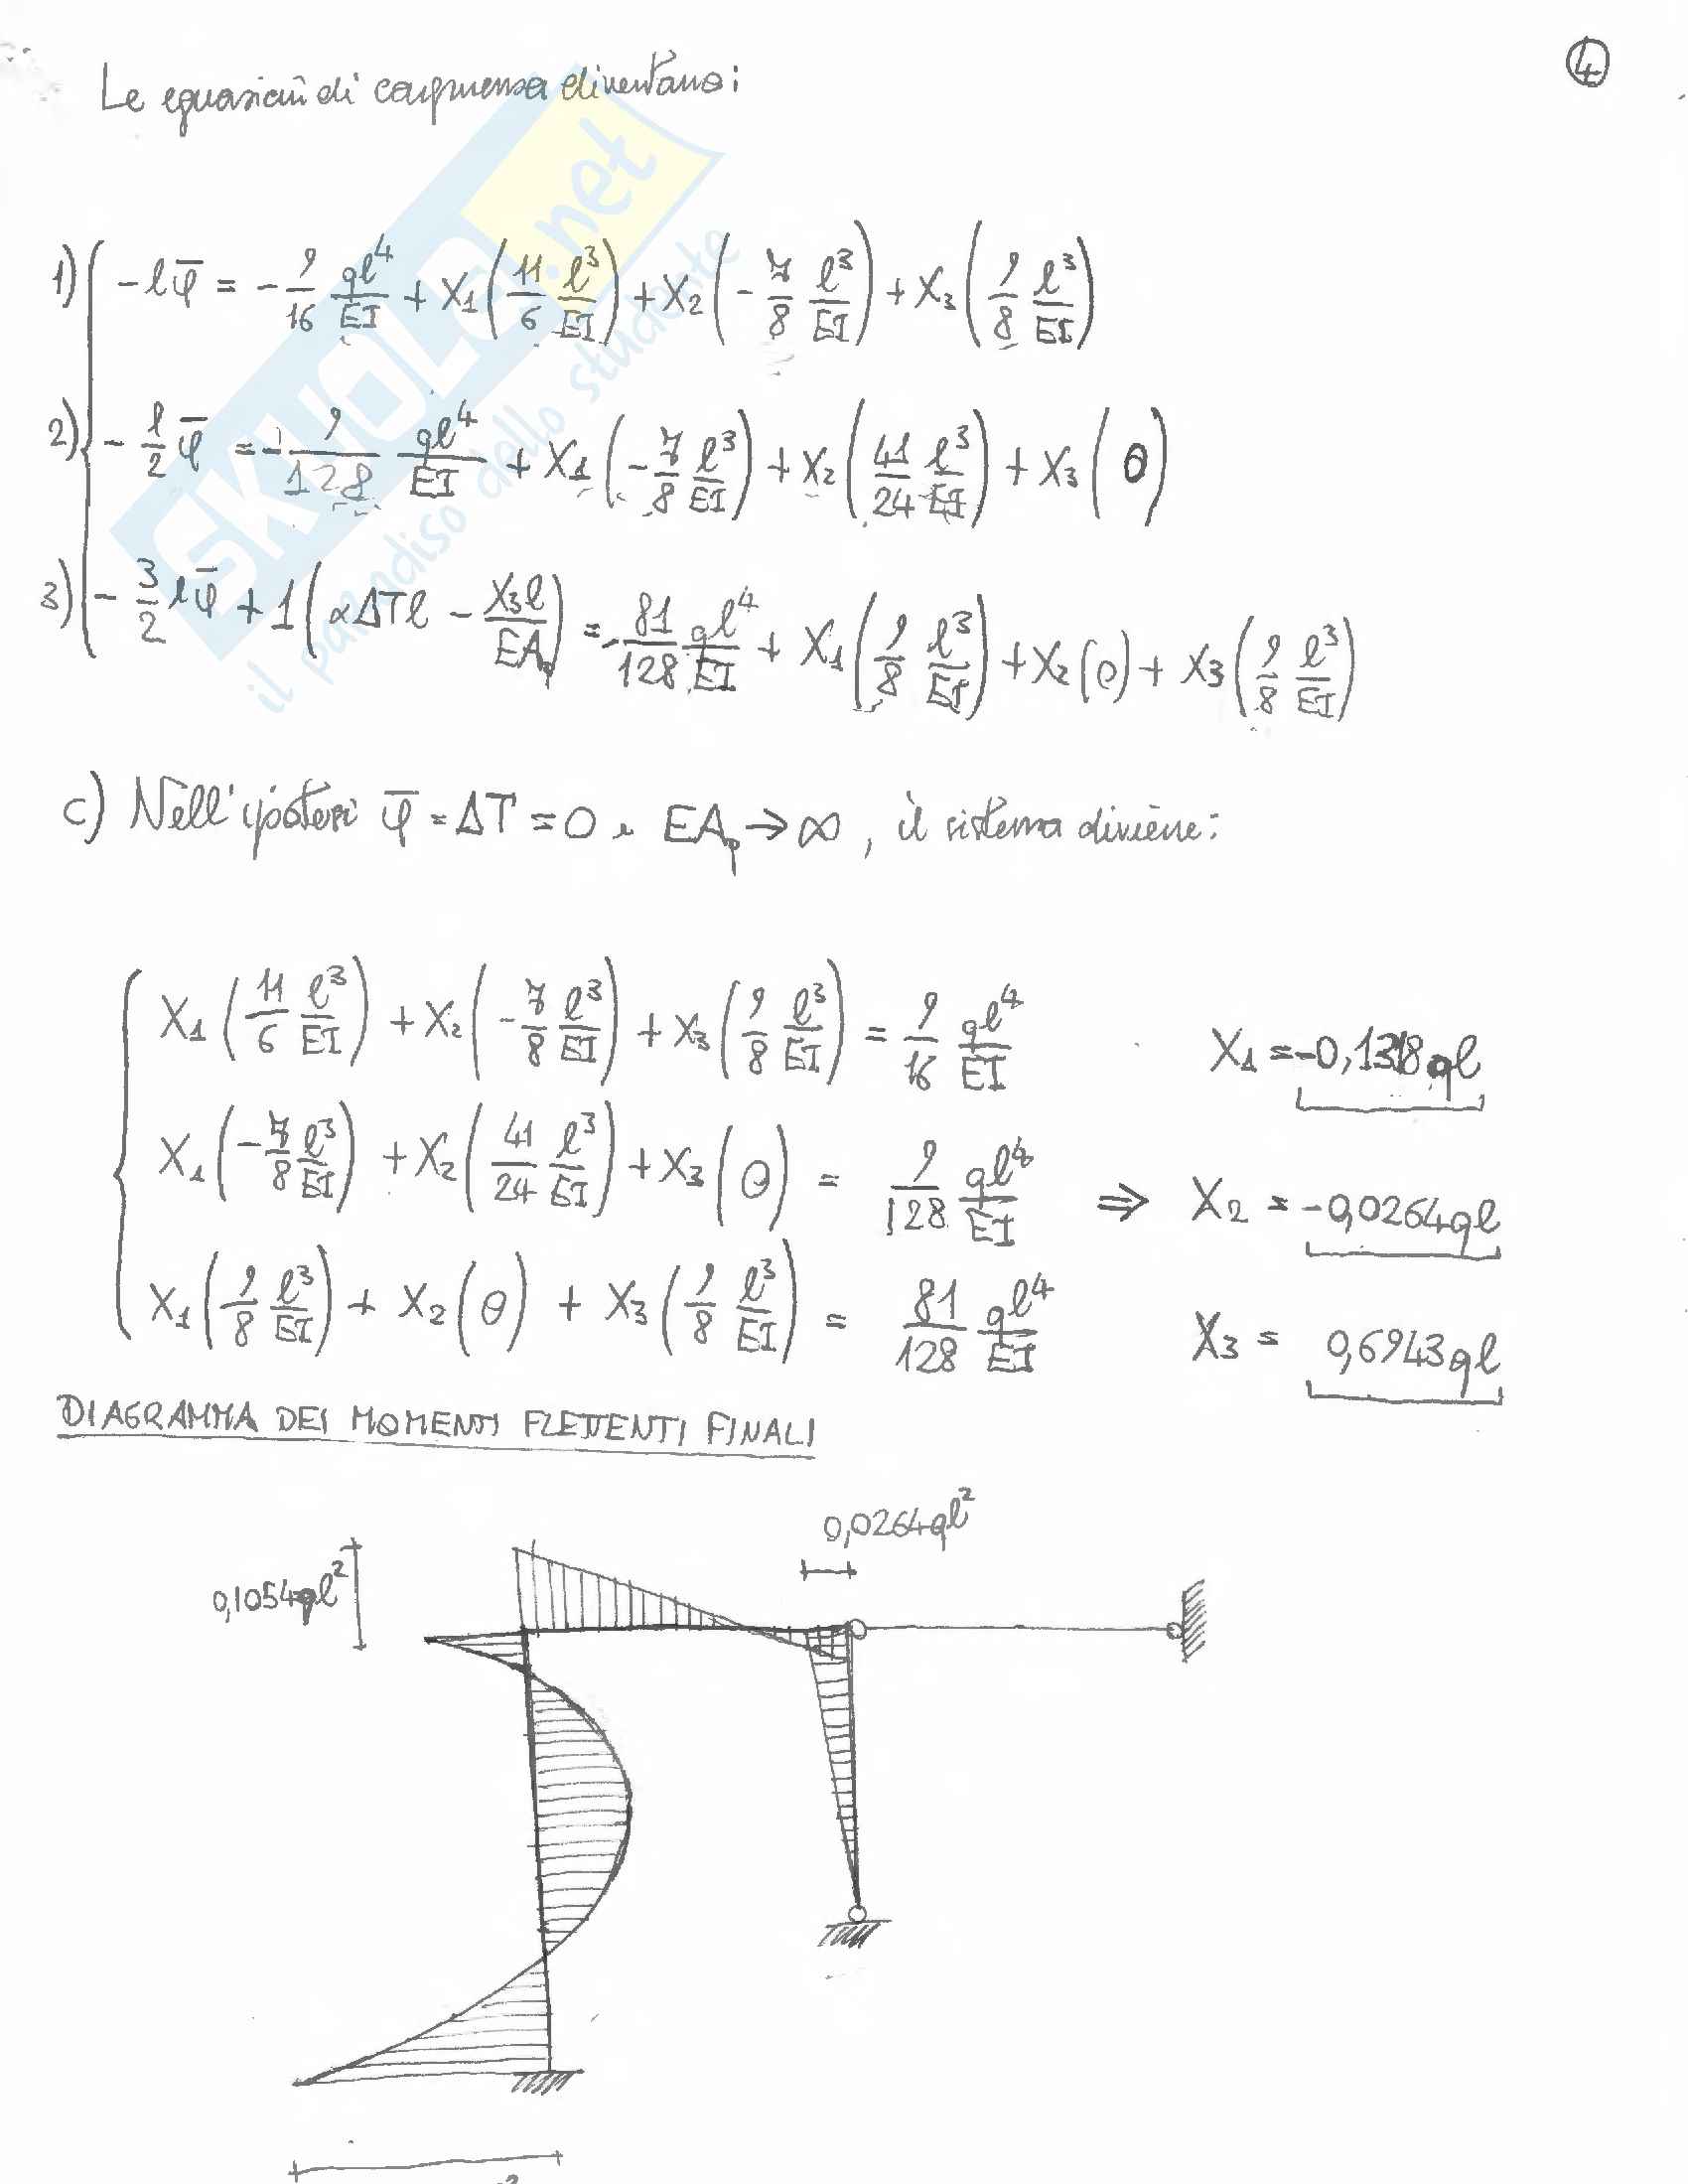 4
Le equazioni di congruenza diventano:
1) -lφ̄ = -9/16 ql⁴/EI + X₁(11/6 l³/EI) + X₂(-7/8 l³/EI) + X₃(9/8 l³/EI)
2) -l/2 φ̄ = -9/128 ql⁴/EI + X₁(-7/8 l³/EI) + X₂(41/24 l³/EI) + X₃(0)
3) -3/2 lφ̄ + 1(αΔTl - X₃l/EAp) = -81/128 ql⁴/EI + X₁(9/8 l³/EI) + X₂(0) + X₃(9/8 l³/EI)
SKUOLA.net
il paradiso dello studente
c) Nell'ipotesi φ̄ = ΔT = 0 e EAp → ∞, il sistema diviene:
X₁(11/6 l³/EI) + X₂(-7/8 l³/EI) + X₃(9/8 l³/EI) = 9/16 ql⁴/EI
X₁ = -0,1318ql
X₁(-7/8 l³/EI) + X₂(41/24 l³/EI) + X₃(0) = 9/128 ql⁴/EI ⇒ X₂ = -0,0264ql
X₁(9/8 l³/EI) + X₂(0) + X₃(9/8 l³/EI) = 81/128 ql⁴/EI
X₃ = 0,6943ql
DIAGRAMMA DEI MOMENTI FLETTENTI FINALI
0,0264ql²
0,1054ql²